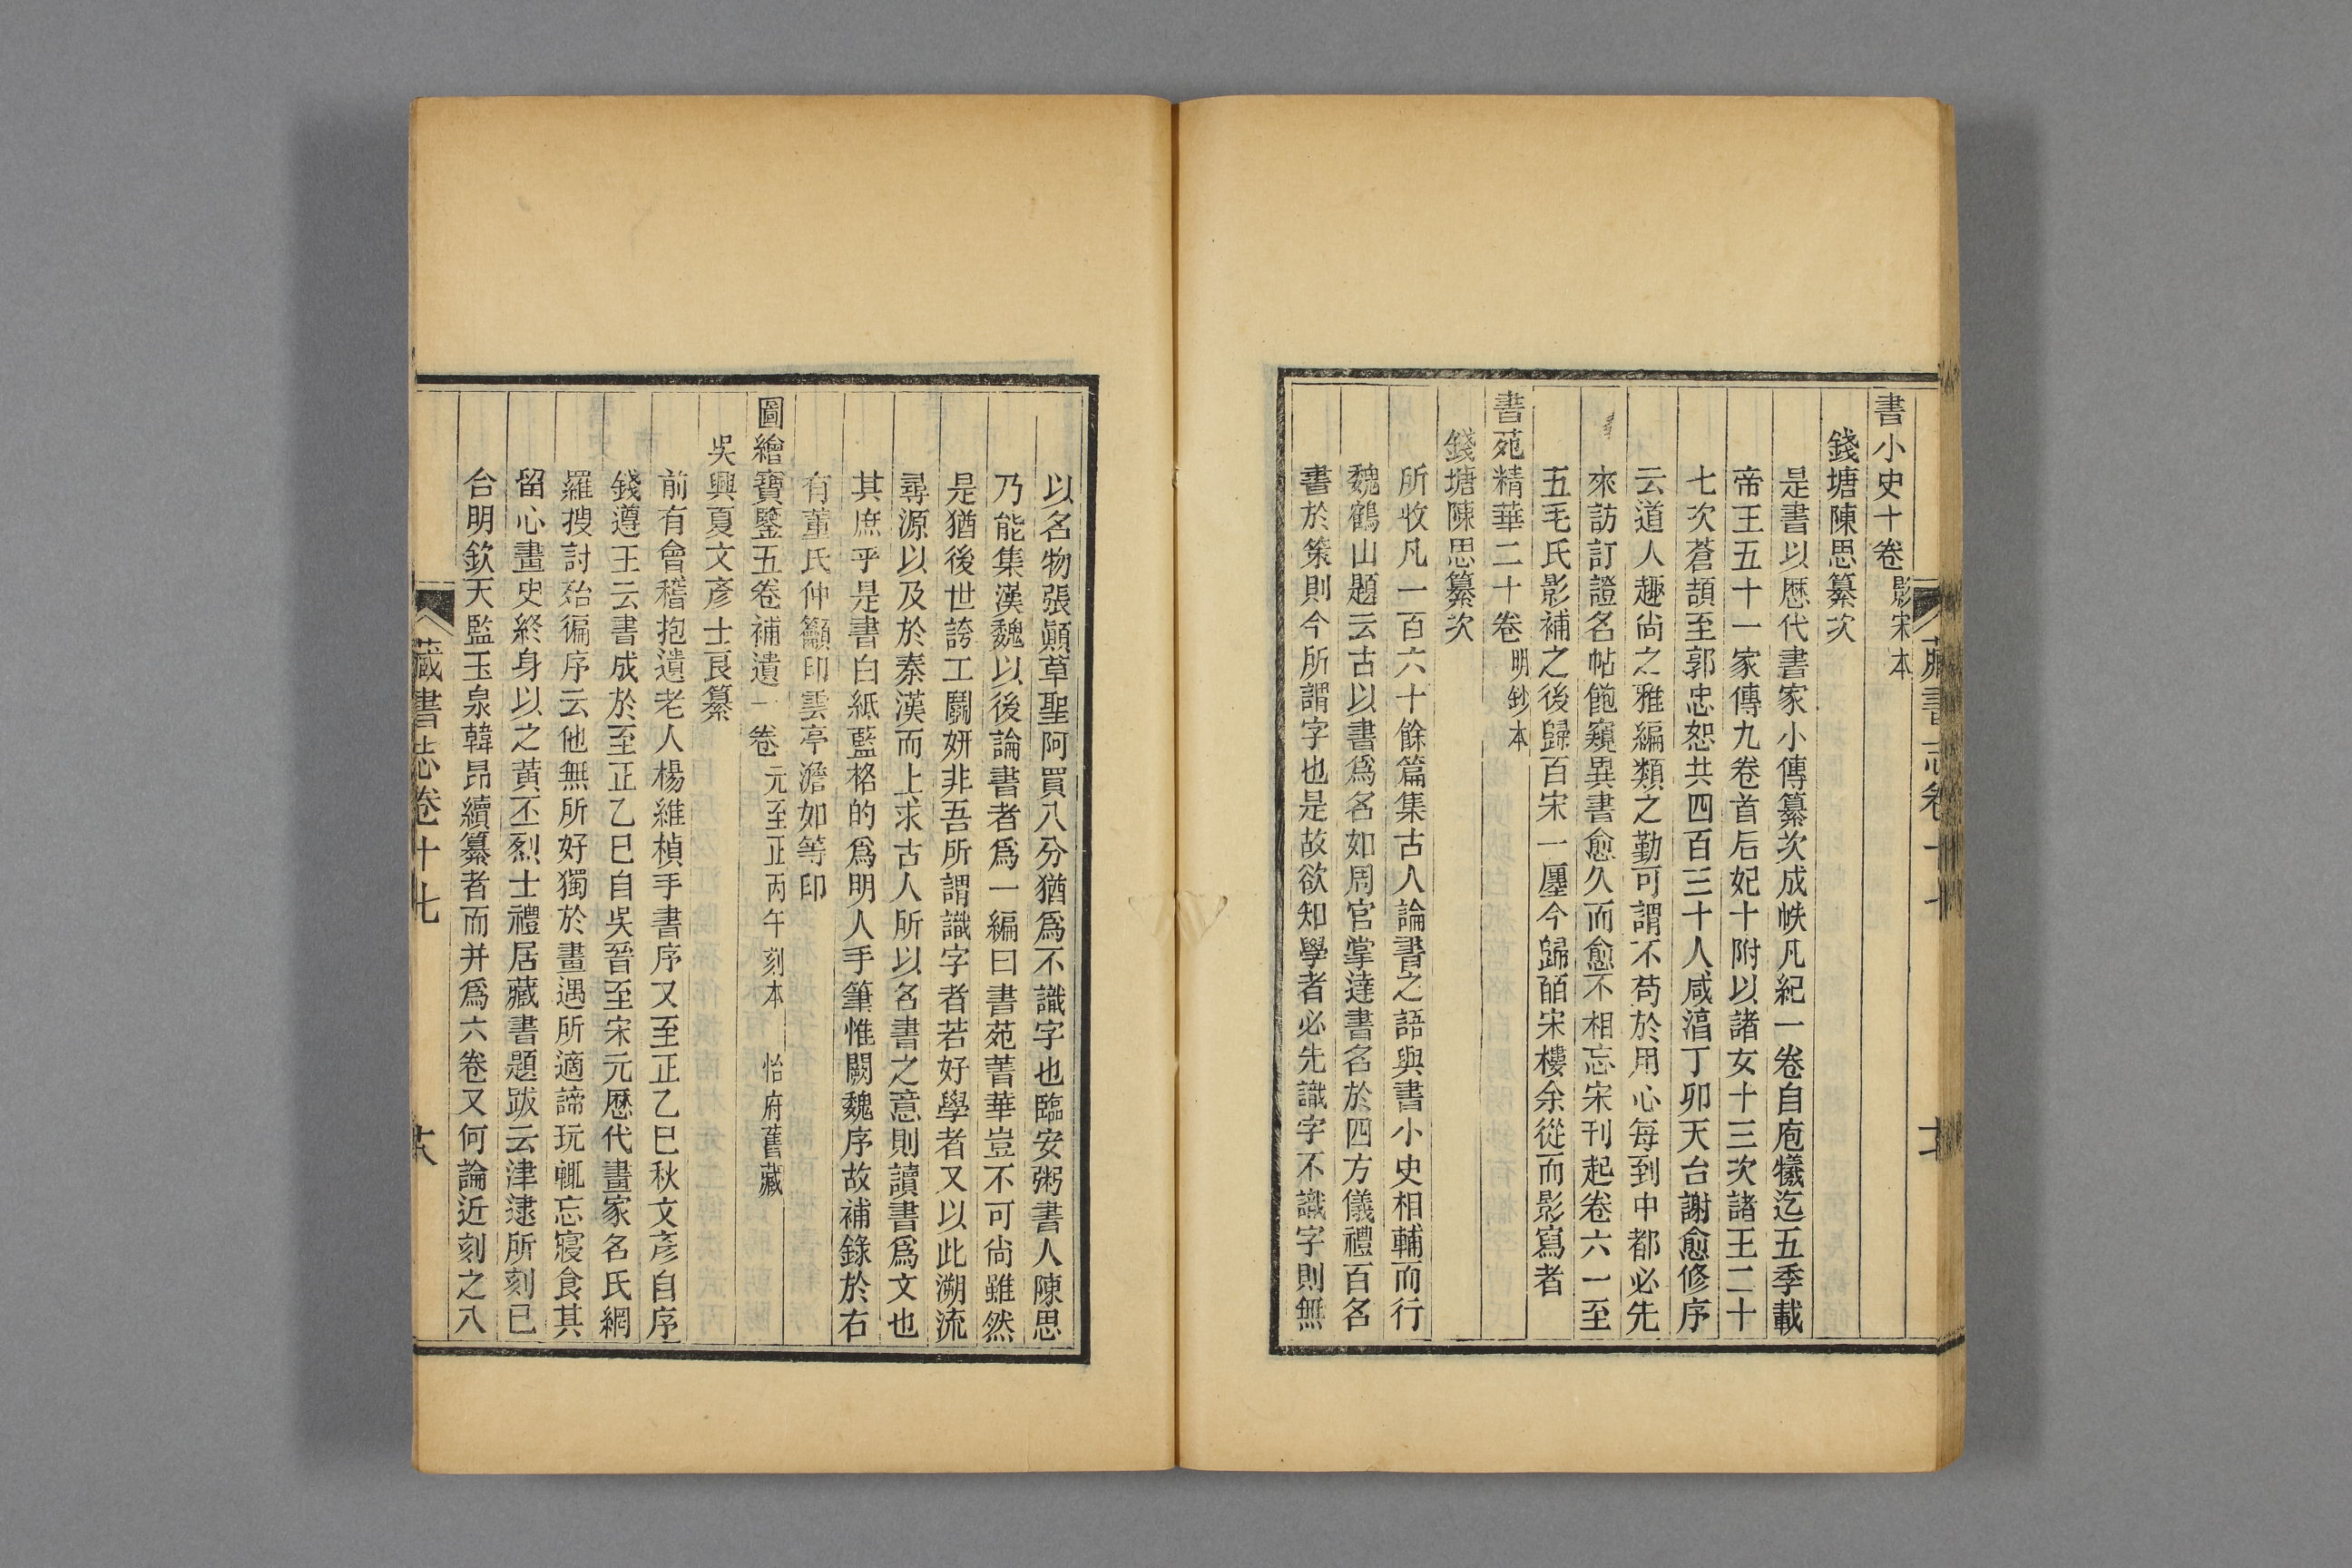 書小史十卷影宋本
錢塘陳思纂次
是書以歷代書家小傳纂次成帙凡紀一卷自庖犧迄五季載
帝王五十一家傳九卷首后妃十附以諸女十三次諸王二十
七次蒼頡至郭忠恕共四百三十人咸淳丁卯天台謝愈修序
云道人趣尙之雅編類之勤可謂不苟於用心每到中都必先
來訪訂證名帖飽窺異書愈久而愈不相忘宋刊起卷六一至
五毛氏影補之後歸百宋一廛今歸皕宋樓余從而影寫者
書苑精華二十卷明鈔本
錢塘陳思纂次
所收凡一百六十餘篇集古人論書之語與書小史相輔而行
魏鶴山題云古以書爲名如周官掌達書名於四方儀禮百名
書於策則今所謂字也是故欲知學者必先識字不識字則無
以名物張顚草聖阿買八分猶爲不識字也臨安粥書人陳思
乃能集漢魏以後論書者爲一編曰書苑菁華豈不可尙雖然
是猶後世誇工鬭妍非吾所謂識字者若好學者又以此溯流
尋源以及於秦漢而上求古人所以名書之意則讀書爲文也
其庶乎是書白紙藍格的爲明人手筆惟闕魏序故補錄於右
有董氏仲籲印雲亭澹如等印
圖繪寶鑒五卷補遺一卷元至正丙午刻本 怡府舊藏
吳興夏文彥士良纂
前有會稽抱遺老人楊維楨手書序又至正乙巳秋文彥自序
錢遵王云書成於至正乙巳自吳晉至宋元歷代畫家名氏網
羅搜討殆徧序云他無所好獨於畫遇所適諦玩輒忘寢食其
留心畫史終身以之黃丕烈士禮居藏書題跋云津逮所刻已
合明欽天監玉泉韓昂續纂者而并爲六卷又何論近刻之八
藏書志卷十七